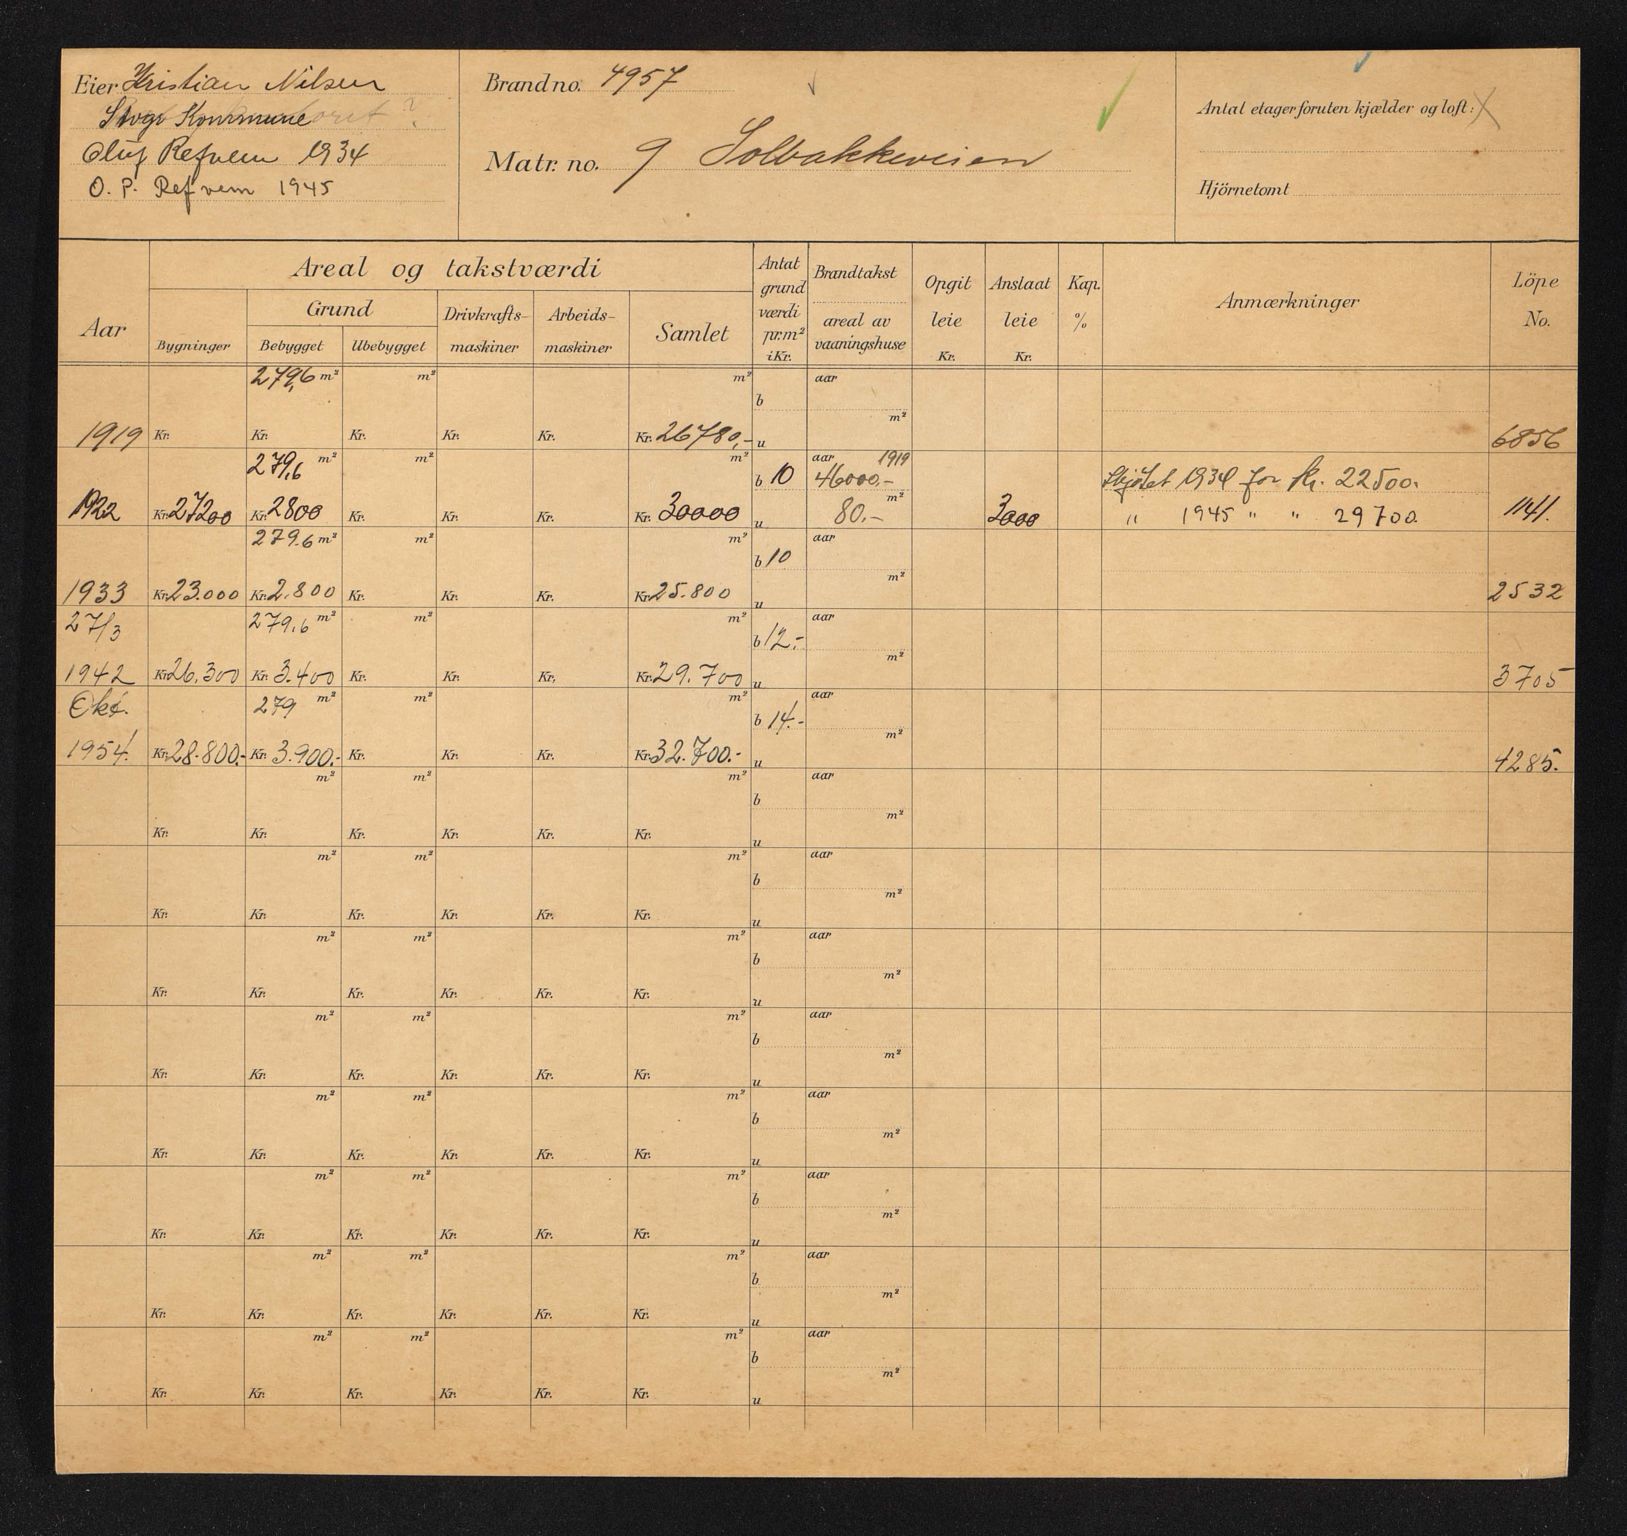 Eier Kristian Nilsen
Kommune
Oluf Refvem 1934
O. P. Refvem 1945
Brand no. 4957
Matr. no. 9 Solbakkeveien
Antal etager foruten kjælder og loft: X
Hjörnetomt
Aar
Areal og takstværdi
Grund
Bygninger Bebygget Ubebygget Drivkrafts-maskiner Arbeids-maskiner Samlet
Antat grund værdi pr.m² i Kr.
Brandtakst
areal av vaaningshuse
Opgit leie Kr.
Anslaat leie Kr.
Kap. %
Anmærkninger
Löpe No.
279,6 m² m² m² aar
b
m²
1919 Kr. Kr. Kr. Kr. Kr. Kr. 26780,- u 6856
279,6 m² m² m² aar 1919
b 10 46000.- Skjøtet 1934 for kr. 22500.
m²
1922 Kr. 27200 Kr. 2800 Kr. Kr. Kr. Kr. 30000 u 80.- 3000 " 1945 " " 29700. 1141.
279.6 m² m² m² aar
b 10
m²
1933 Kr. 23.000 Kr. 2.800 Kr. Kr. Kr. Kr. 25.800 u 2532
27/3 279,6 m² m² m² aar
b 12.-
m²
1942 Kr. 26.300 Kr. 3.400 Kr. Kr. Kr. Kr. 29.700 u 3705
Okt. 279 m² m² m² aar
b 14.-
m²
1954. Kr. 28.800.- Kr. 3.900.- Kr. Kr. Kr. Kr. 32.700.- u 4285.
m² m² m² aar
b
m²
Kr. Kr. Kr. Kr. Kr. Kr. u
m² m² m² aar
b
m²
Kr. Kr. Kr. Kr. Kr. Kr. u
m² m² m² aar
b
m²
Kr. Kr. Kr. Kr. Kr. Kr. u
m² m² m² aar
b
m²
Kr. Kr. Kr. Kr. Kr. Kr. u
m² m² m² aar
b
m²
Kr. Kr. Kr. Kr. Kr. Kr. u
m² m² m² aar
b
m²
Kr. Kr. Kr. Kr. Kr. Kr. u
m² m² m² aar
b
m²
Kr. Kr. Kr. Kr. Kr. Kr. u
m² m² m² aar
b
m²
Kr. Kr. Kr. Kr. Kr. Kr. u